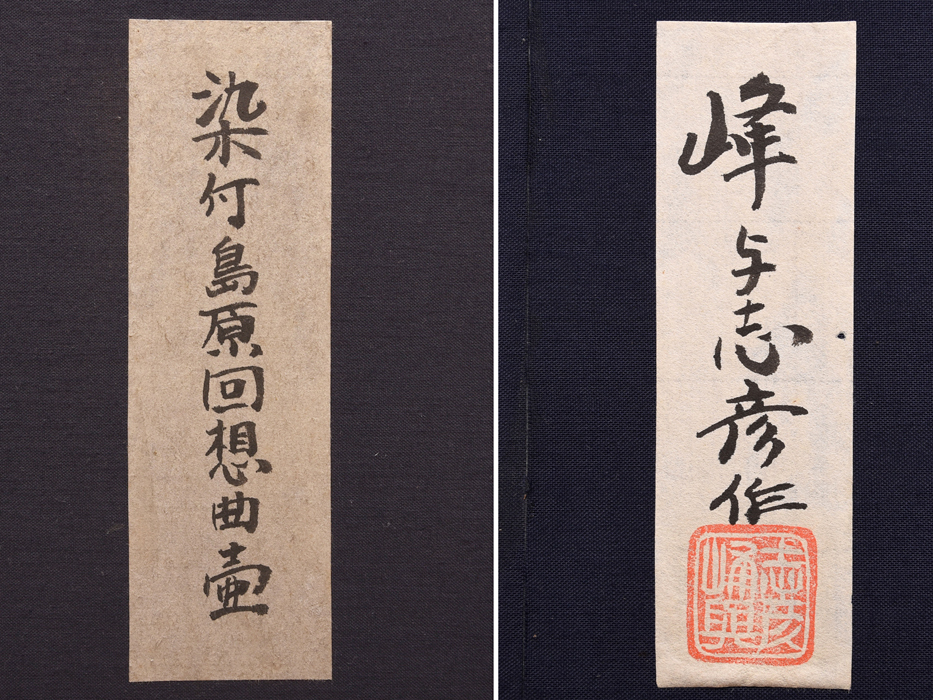 染付島原回想曲壷
峰与志彦作